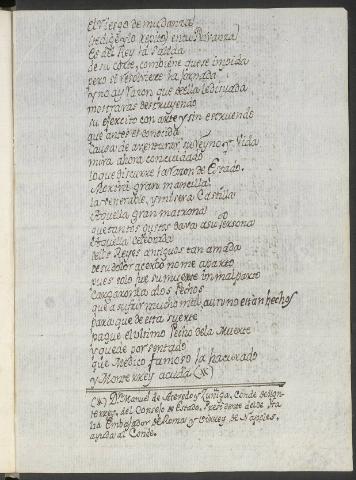 el riesgo de mudanza
te dige, y lo repito en tu Privanza
Es del Rey la Salida
de su corte, combiene que se impida
pero si resolviere la jornada
y no ay razon que della le disuada
mostraras destruyendo
su exercito con arte y sin estruendo
que antes es conocida
causa de aventurar su Reyno, y Vida
mira ahora con cuidado
lo que discurre la razon de Estado.
Morira gran mancilla
la venerable, y misera Castilla
Aquella gran matrona
que tantos gustos dava a su Persona
Aquella celebrada
de los Reyes antiguos tan amada
de su dolor acerbo no me aparto
pues solo fue su muerte un mal parto
Cargaronla a los Pechos
que a sufrir mucho mal, aun no estan hechos
para que de esta suerte
pague el ultimo Pecho de la Muerte
y quede por sentado
que Medico famoso la ha curado
y Monterrey acuda (*)
(*) Dn. Manuel de Acevedo y Zuñiga, Conde de Mon-
terrey, del Consejo de Estado, Presidente del de Ita-
lia Embajador de Roma y Virrey de Napoles,
al Conde.